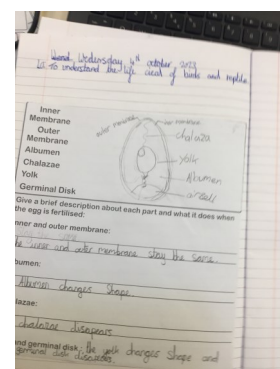 Wednesday, 4th october, 2023
LI To understand the life of birds and reptile
Inner
Membrane
Outer
Membrane
Albumen
Chalazae
Yolk
Germinal Disk
outer membrane
membrane
chalaza
yolk
Albumen
Give a brief description about each part and what it does when
the egg is fertilised:
nner and outer membrane:
he inner and outer membrane stay the same.
bumen:
Albumen changes Shape.
lazae:
chalazae disapears
nd germinal disk: the yolk changes shape and
germinal disk disapears.